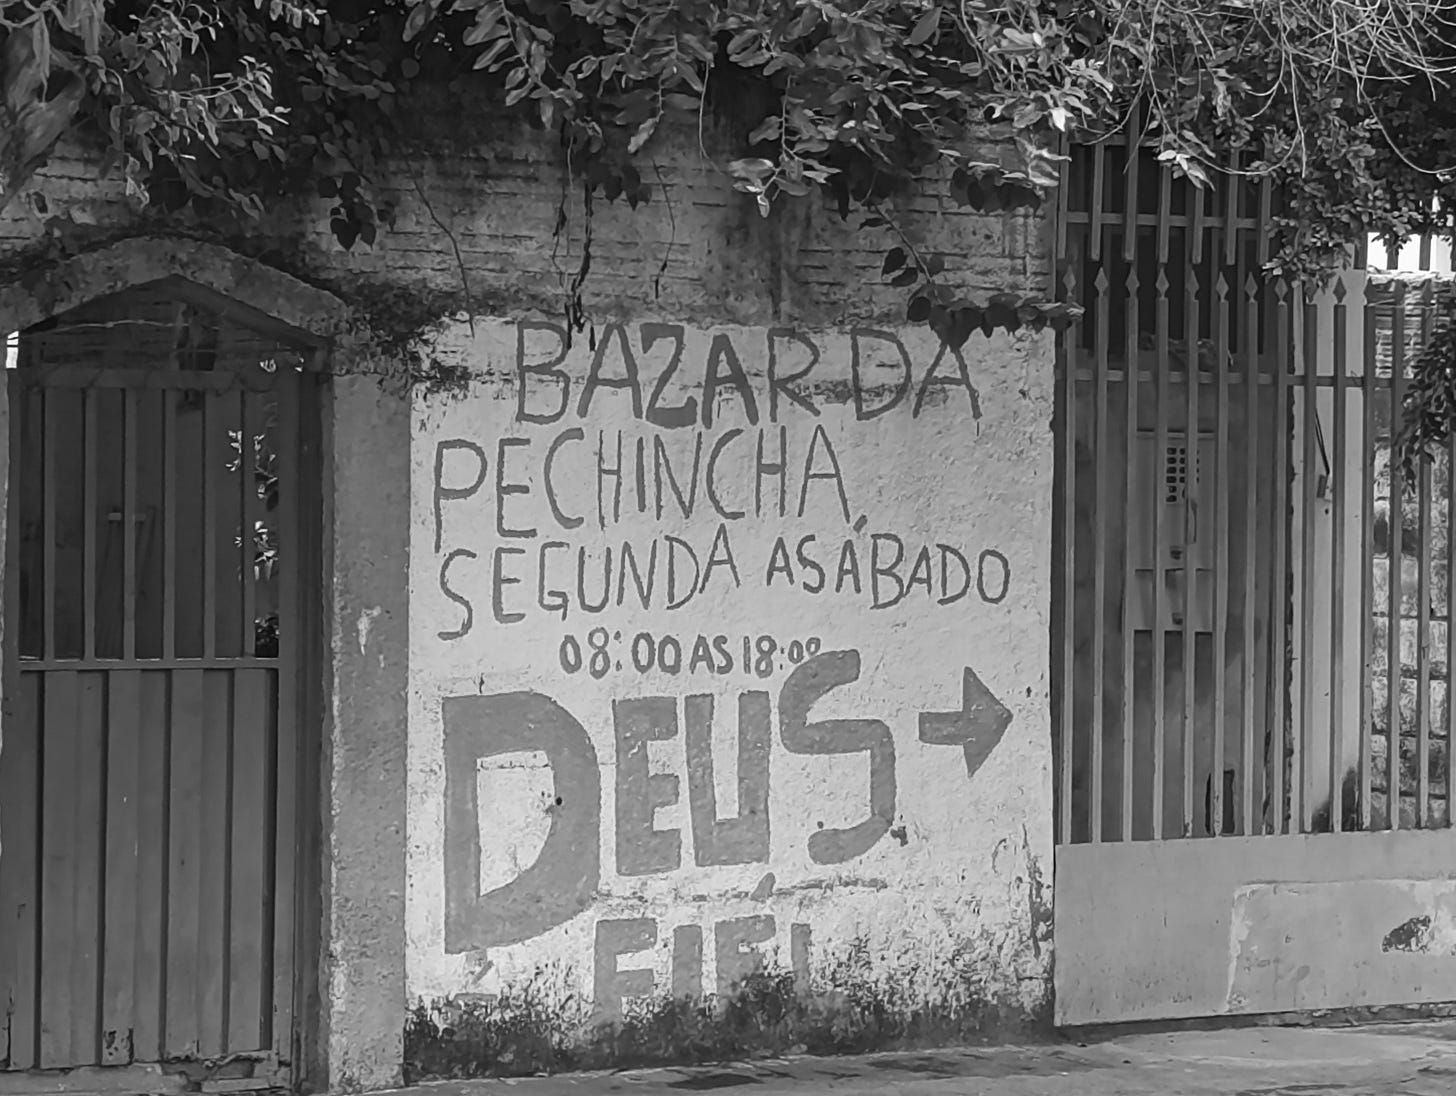 BAZAR DA
PECHINCHA,
SEGUNDA A SÁBADO
08:00 AS 18:00
DEUS
É FIÉL